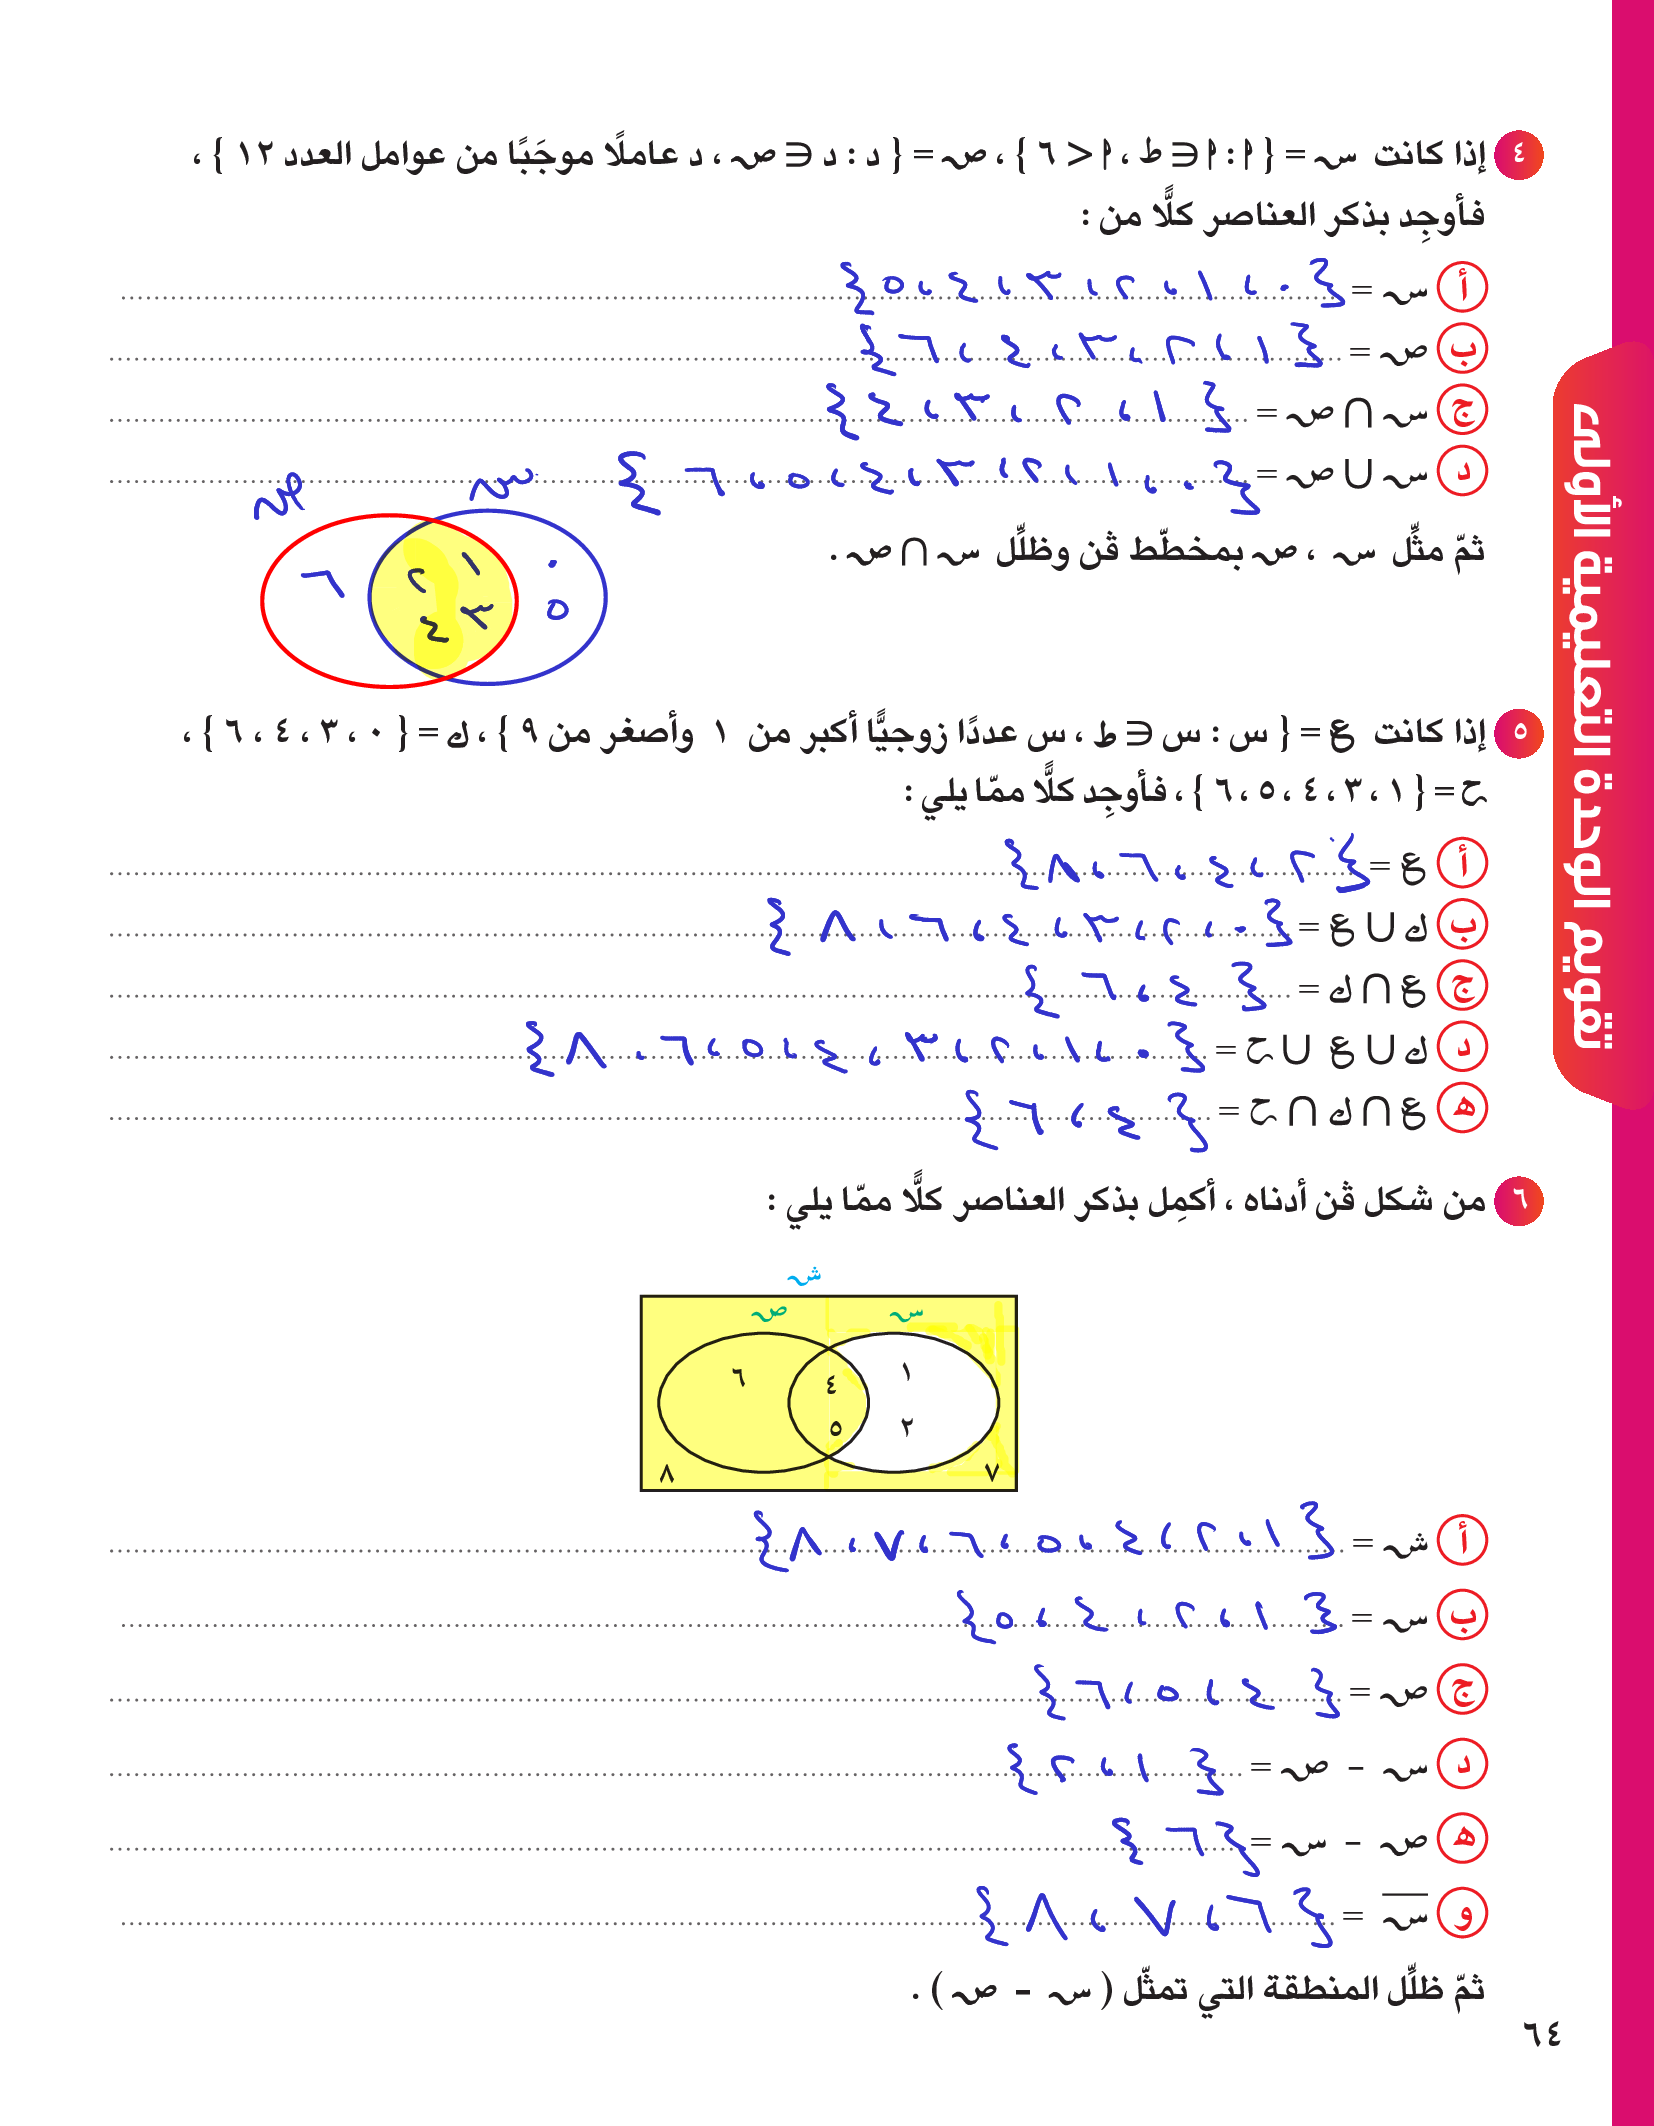 ٤ إذا كانت سـ = { ا : ا ∈ ط ، ا < ٦ } ، صـ = { د : د ∈ صـ ، د عاملًا موجَبًا من عوامل العدد ١٢ } ،
فأوجِد بذكر العناصر كلًّا من :
أ سـ = { ٠ ، ١ ، ٢ ، ٣ ، ٤ ، ٥ }
ب صـ = { ١ ، ٢ ، ٣ ، ٤ ، ٦ }
ج سـ ∩ صـ = { ١ ، ٢ ، ٣ ، ٤ }
د سـ ∪ صـ = { ٠ ، ١ ، ٢ ، ٣ ، ٤ ، ٥ ، ٦ }
ثمّ مثِّل سـ ، صـ بمخطّط ڤن وظلِّل سـ ∩ صـ .
سـ صـ
٠ ١ ٢ ٦
٥ ٣ ٤
٥ إذا كانت ع = { س : س ∈ ط ، س عددًا زوجيًّا أكبر من ١ وأصغر من ٩ } ، ك = { ٠ ، ٣ ، ٤ ، ٦ } ،
ح = { ١ ، ٣ ، ٤ ، ٥ ، ٦ } ، فأوجِد كلًّا ممّا يلي :
أ ع = { ٢ ، ٤ ، ٦ ، ٨ }
ب ك ∪ ع = { ٠ ، ٢ ، ٣ ، ٤ ، ٦ ، ٨ }
ج ع ∩ ك = { ٤ ، ٦ }
د ك ∪ ع ∪ ح = { ٠ ، ١ ، ٢ ، ٣ ، ٤ ، ٥ ، ٦ ، ٨ }
ه ع ∩ ك ∩ ح = { ٤ ، ٦ }
٦ من شكل ڤن أدناه ، أكمِل بذكر العناصر كلًّا ممّا يلي :
شـ
سـ صـ
١ ٤ ٦
٢ ٥
٧ ٨
أ شـ = { ١ ، ٢ ، ٤ ، ٥ ، ٦ ، ٧ ، ٨ }
ب سـ = { ١ ، ٢ ، ٤ ، ٥ }
ج صـ = { ٤ ، ٥ ، ٦ }
د سـ - صـ = { ١ ، ٢ }
ه صـ - سـ = { ٦ }
و س̅ـ = { ٦ ، ٧ ، ٨ }
ثمّ ظلِّل المنطقة التي تمثّل ( سـ - صـ ) .
٦٤
تقويم الوحدة التعليمية الأولى